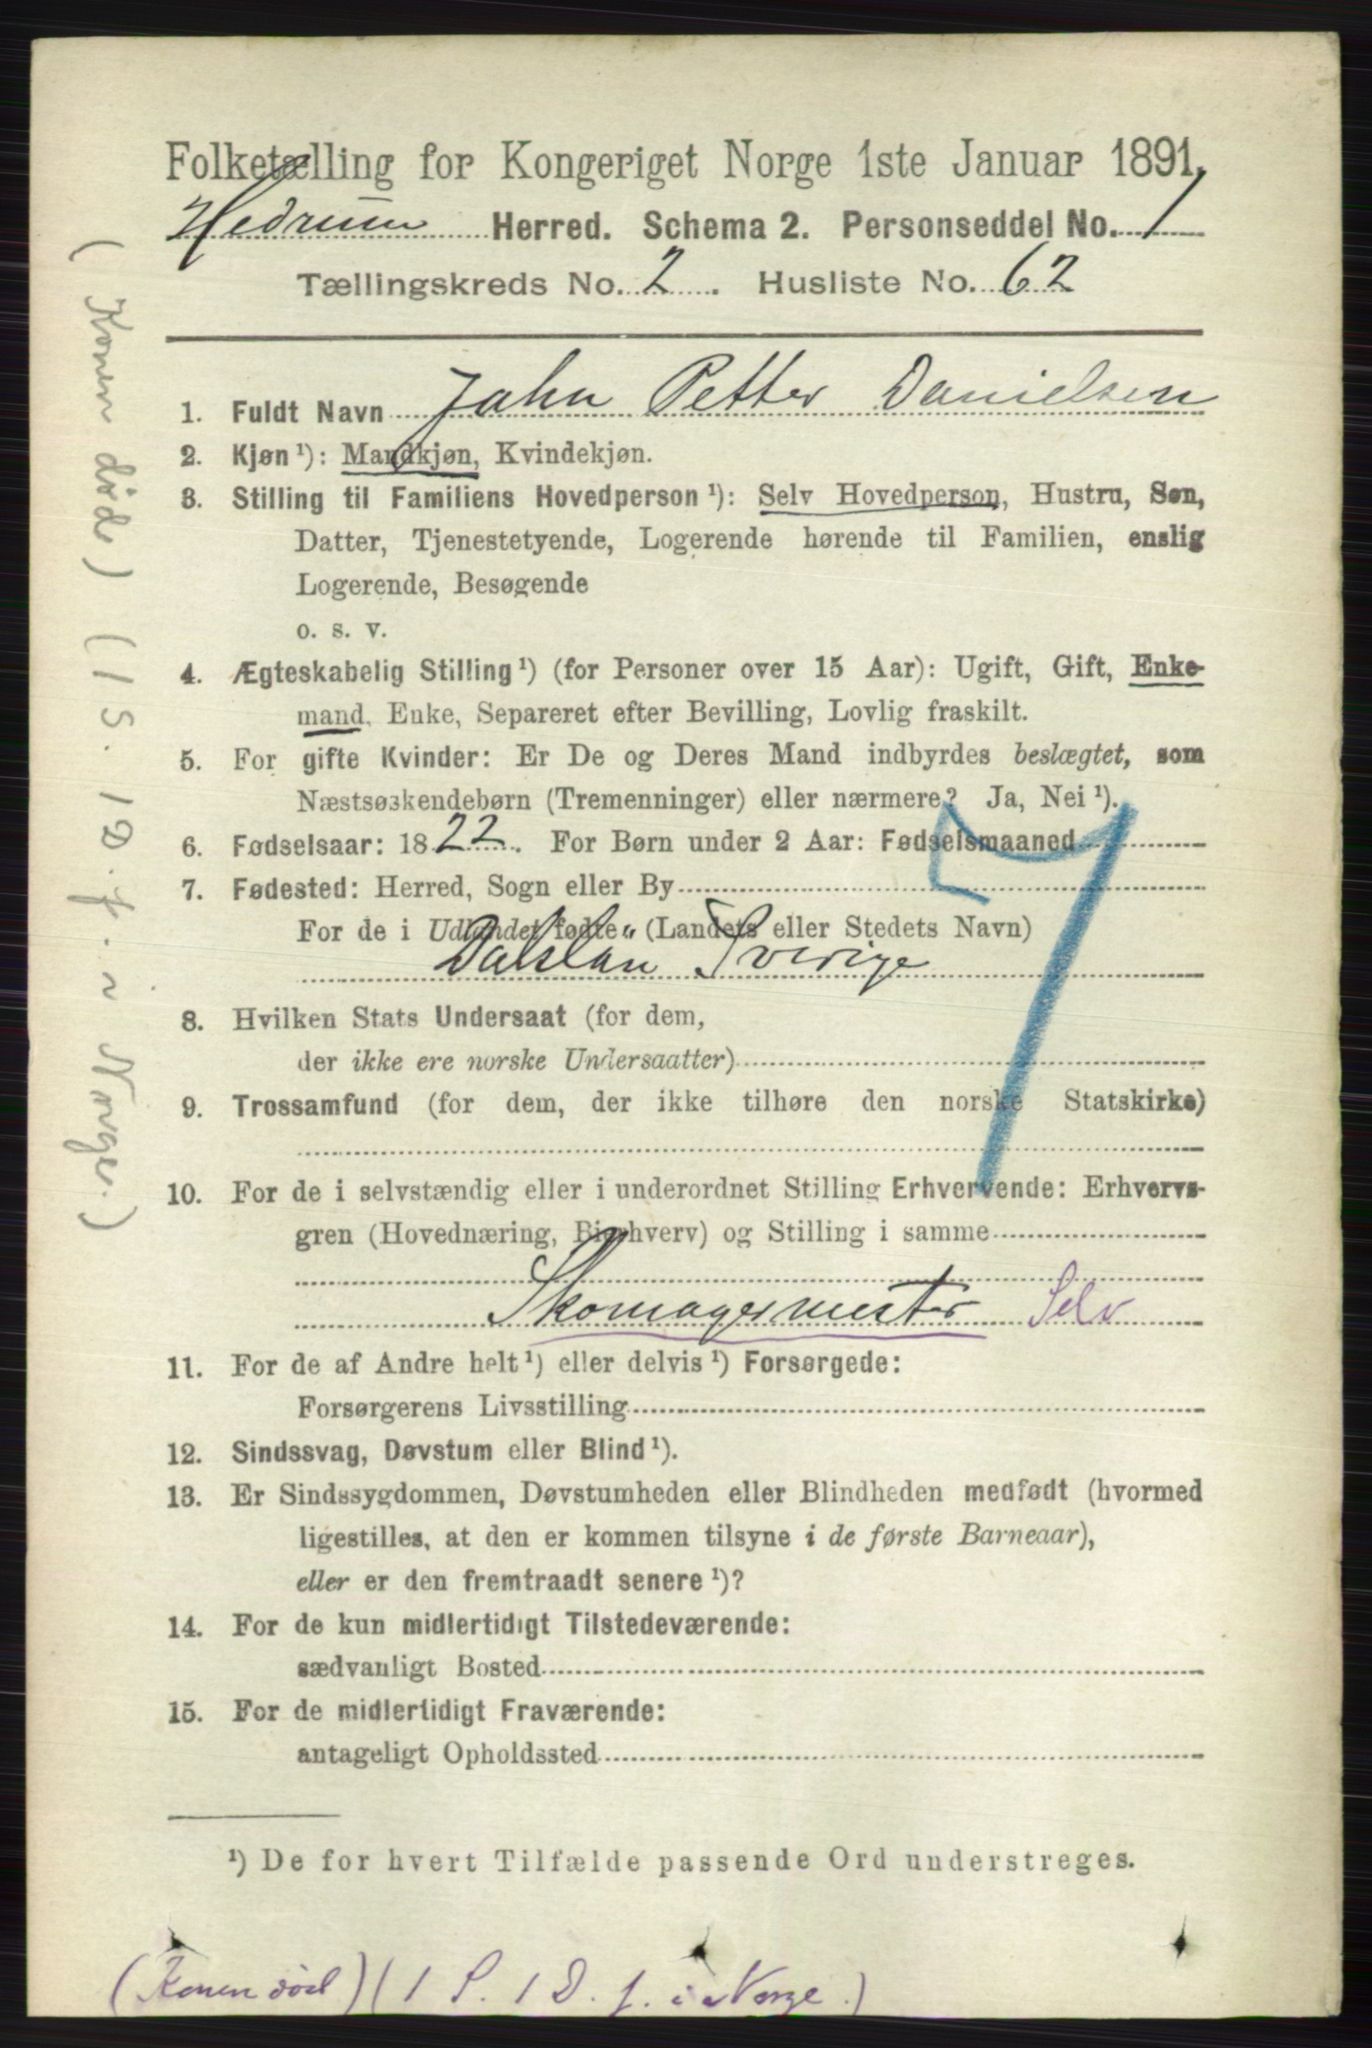 Folketælling for Kongeriget Norge 1ste Januar 1891.
Hedrum Herred. Schema 2. Personseddel No. 1
Tællingskreds No. 2. Husliste No. 62
1. Fuldt Navn Jahn Petter Danielsen
2. Kjøn ¹): Mandkjøn, Kvindekjøn.
3. Stilling til Familiens Hovedperson ¹): Selv Hovedperson, Hustru, Søn,
Datter, Tjenestetyende, Logerende hørende til Familien, enslig
Logerende, Besøgende
o. s. v.
4. Ægteskabelig Stilling ¹) (for Personer over 15 Aar): Ugift, Gift, Enke-
mand, Enke, Separeret efter Bevilling, Lovlig fraskilt.
5. For gifte Kvinder: Er De og Deres Mand indbyrdes beslægtet, som
Næstsøskendebørn (Tremenninger) eller nærmere? Ja, Nei ¹).
6. Fødselsaar: 1822. For Børn under 2 Aar: Fødselsmaaned
7. Fødested: Herred, Sogn eller By
For de i Udlandet fødte (Landets eller Stedets Navn)
Dalslan Sverige
8. Hvilken Stats Undersaat (for dem,
der ikke ere norske Undersaatter)
9. Trossamfund (for dem, der ikke tilhøre den norske Statskirke)
10. For de i selvstændig eller i underordnet Stilling Erhvervende: Erhvervs-
gren (Hovednæring, Bierhverv) og Stilling i samme
Skomagermester Selv
11. For de af Andre helt ¹) eller delvis ¹) Forsørgede:
Forsørgerens Livsstilling
12. Sindssvag, Døvstum eller Blind ¹).
13. Er Sindssygdommen, Døvstumheden eller Blindheden medfødt (hvormed
ligestilles, at den er kommen tilsyne i de første Barneaar),
eller er den fremtraadt senere ¹)?
14. For de kun midlertidigt Tilstedeværende:
sædvanligt Bosted
15. For de midlertidigt Fraværende:
antageligt Opholdssted
¹) De for hvert Tilfælde passende Ord understreges.
(Konen død) (1 S. 1 D. f. i Norge.)
(Konen død) (1 S. 1 D. f. i Norge.)
7